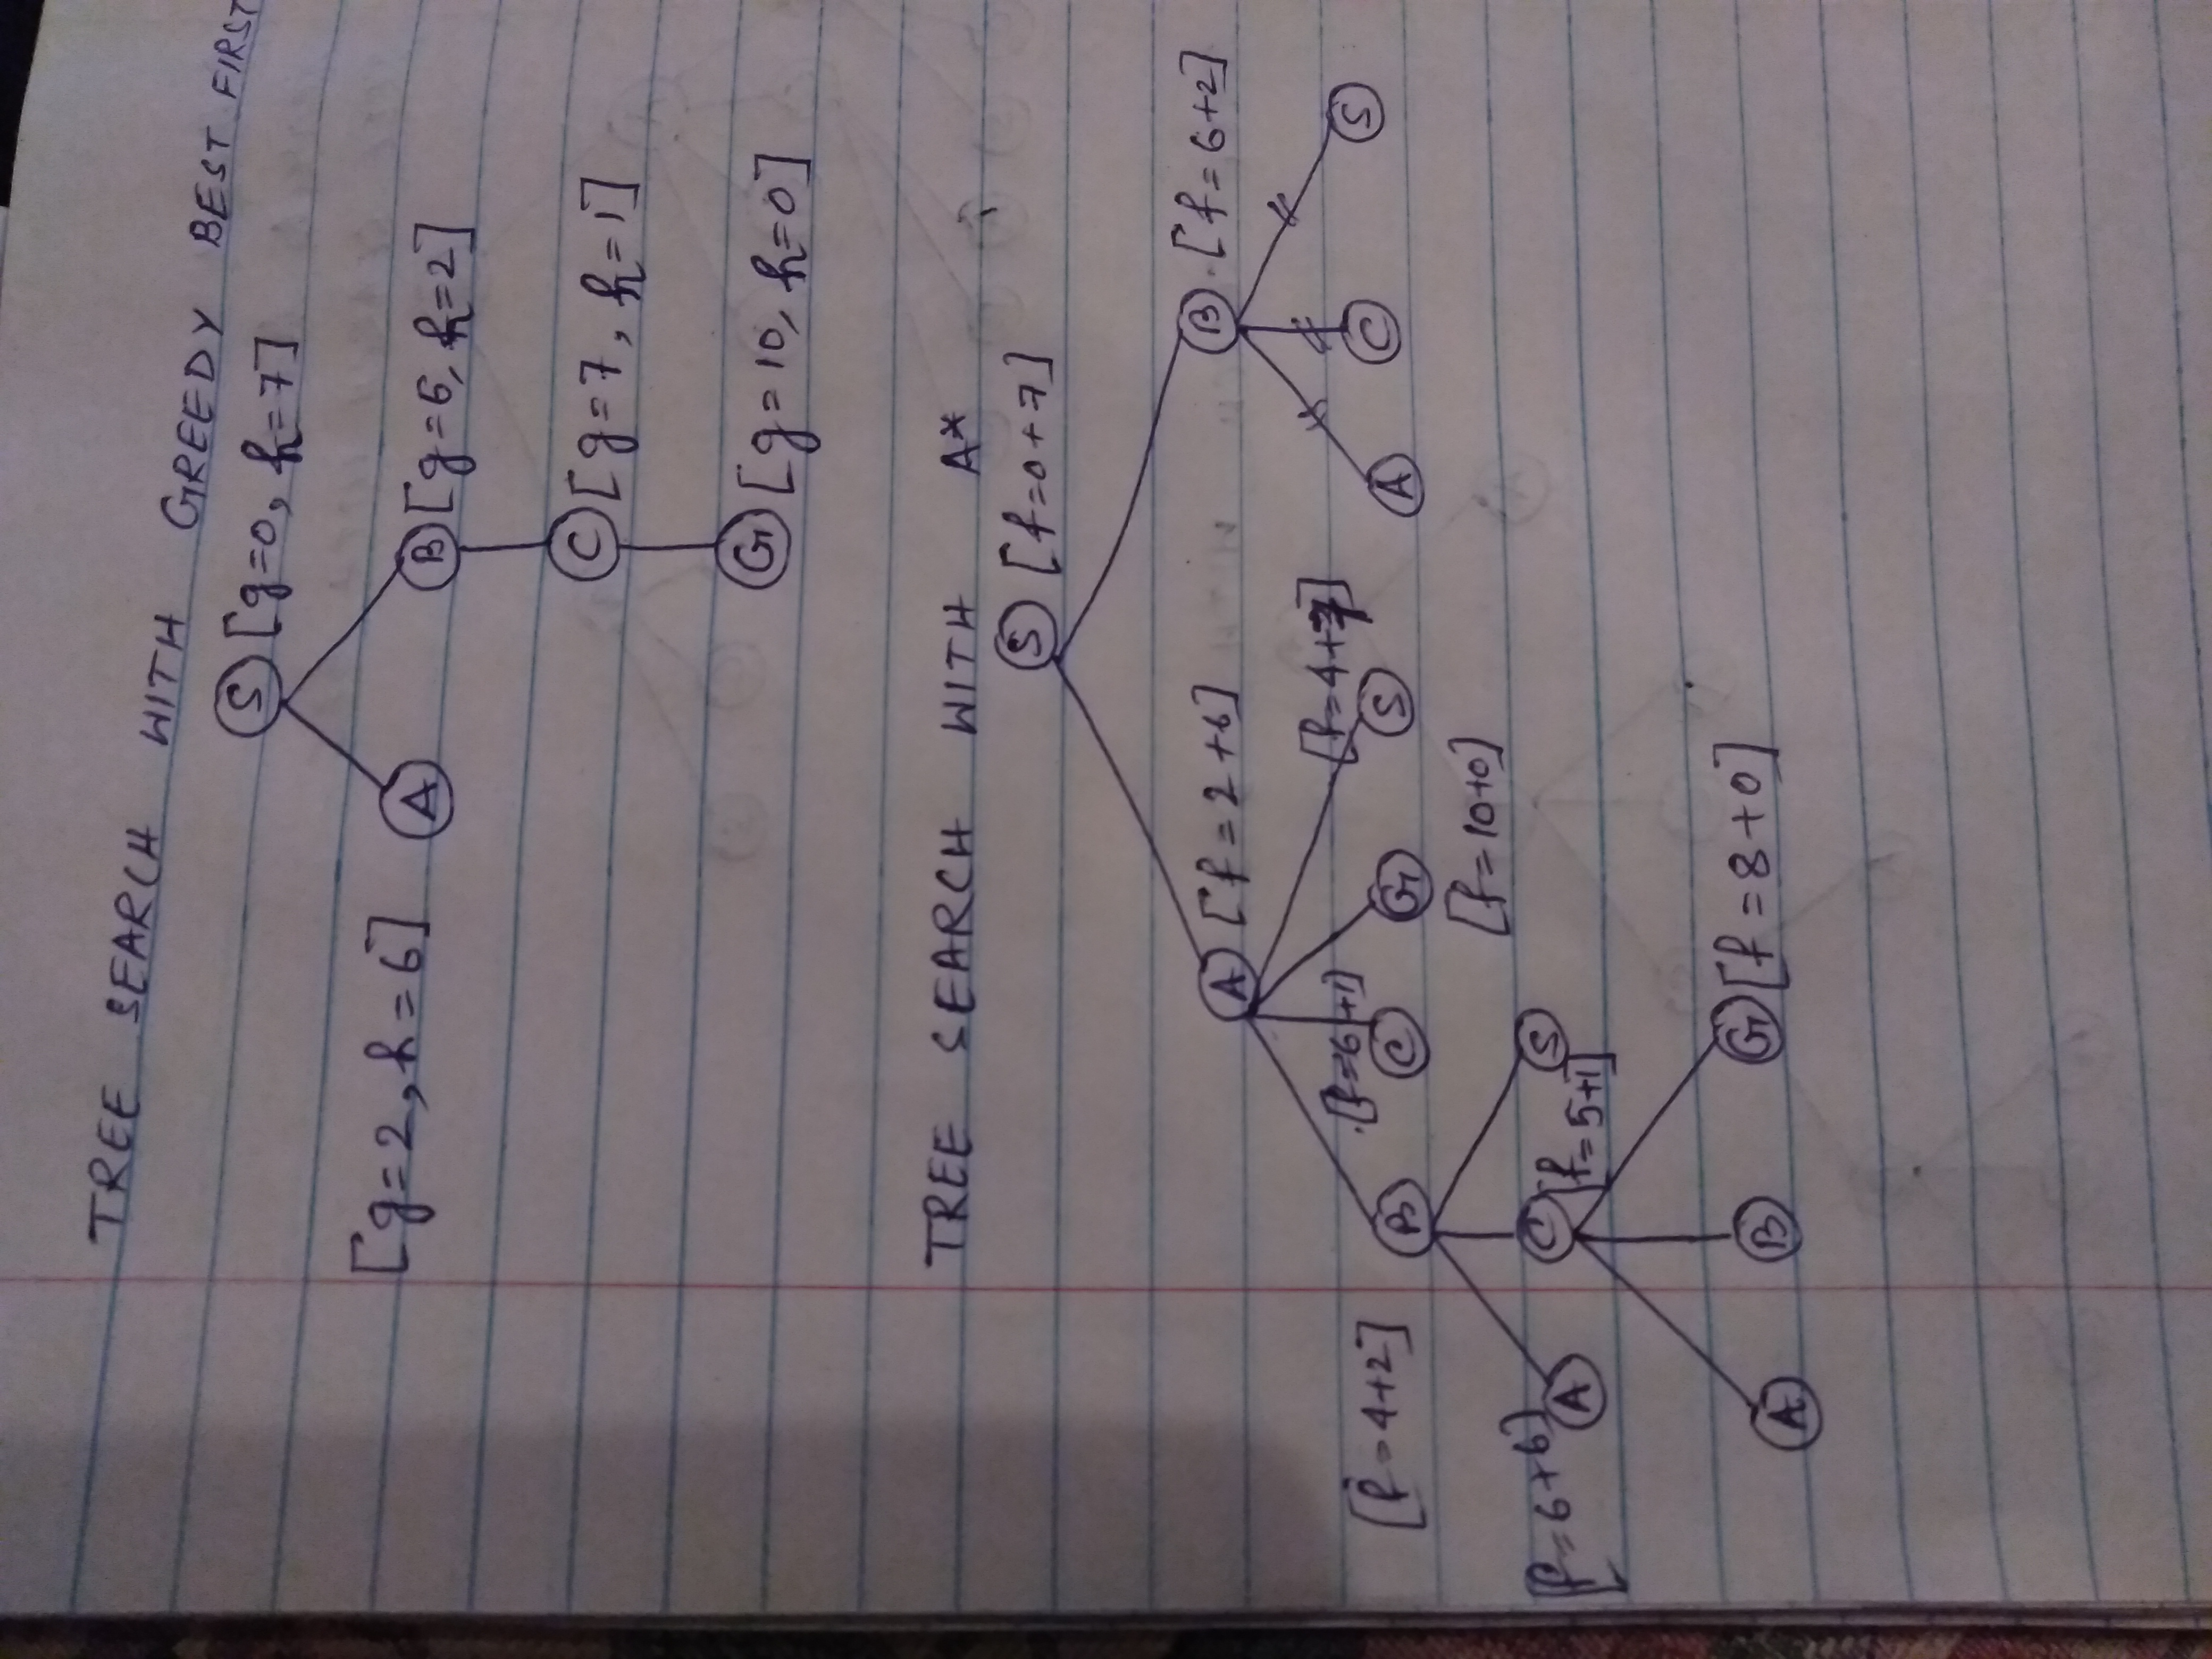 TREE SEARCH WITH GREEDY BEST FIRST
S [g=0, h=7]
[g=2, h=6] A B [g=6, h=2]
C [g=7, h=1]
G [g=10, h=0]
TREE SEARCH WITH A*
S [f=0+7]
A [f=2+6] B [f=6+2]
[f=6+1] [f=4+7]
[f=4+2] B C G S A C S
[f=10+0]
[f=6+6] A C [f=5+1] S
A B G [f=8+0]